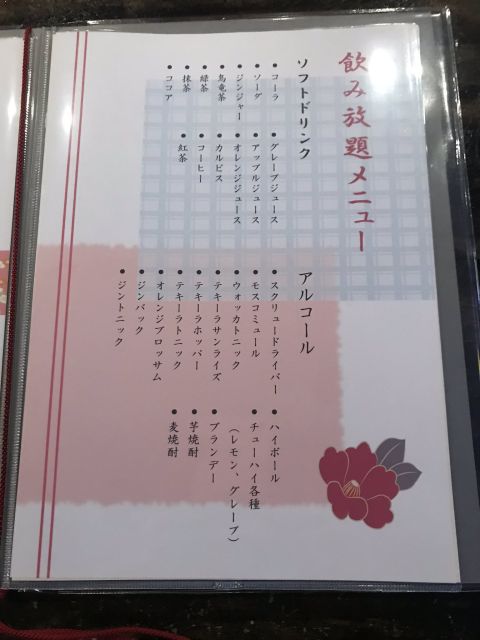 飲み放題メニュー
ソフトドリンク
● コーラ
● ソーダ
● ジンジャー
● 烏竜茶
● 緑茶
● 抹茶
● ココア
● グレープジュース
● アップルジュース
● オレンジジュース
● カルピス
● コーヒー
● 紅茶
アルコール
● スクリュードライバー
● モスコミュール
● ウォッカトニック
● テキーラサンライズ
● テキーラホッパー
● テキーラトニック
● オレンジブロッサム
● ジンバック
● ジントニック
● ハイボール
● チューハイ各種
(レモン、グレープ)
● ブランデー
● 芋焼酎
● 麦焼酎